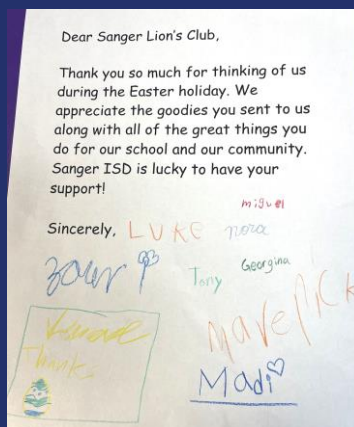 Dear Sanger Lion's Club,
Thank you so much for thinking of us
during the Easter holiday. We
appreciate the goodies you sent to us
along with all of the great things you
do for our school and our community.
Sanger ISD is lucky to have your
support!
miguel
Sincerely, LUKE nora
Georgina
Tony
Maverick
Thank
Madi